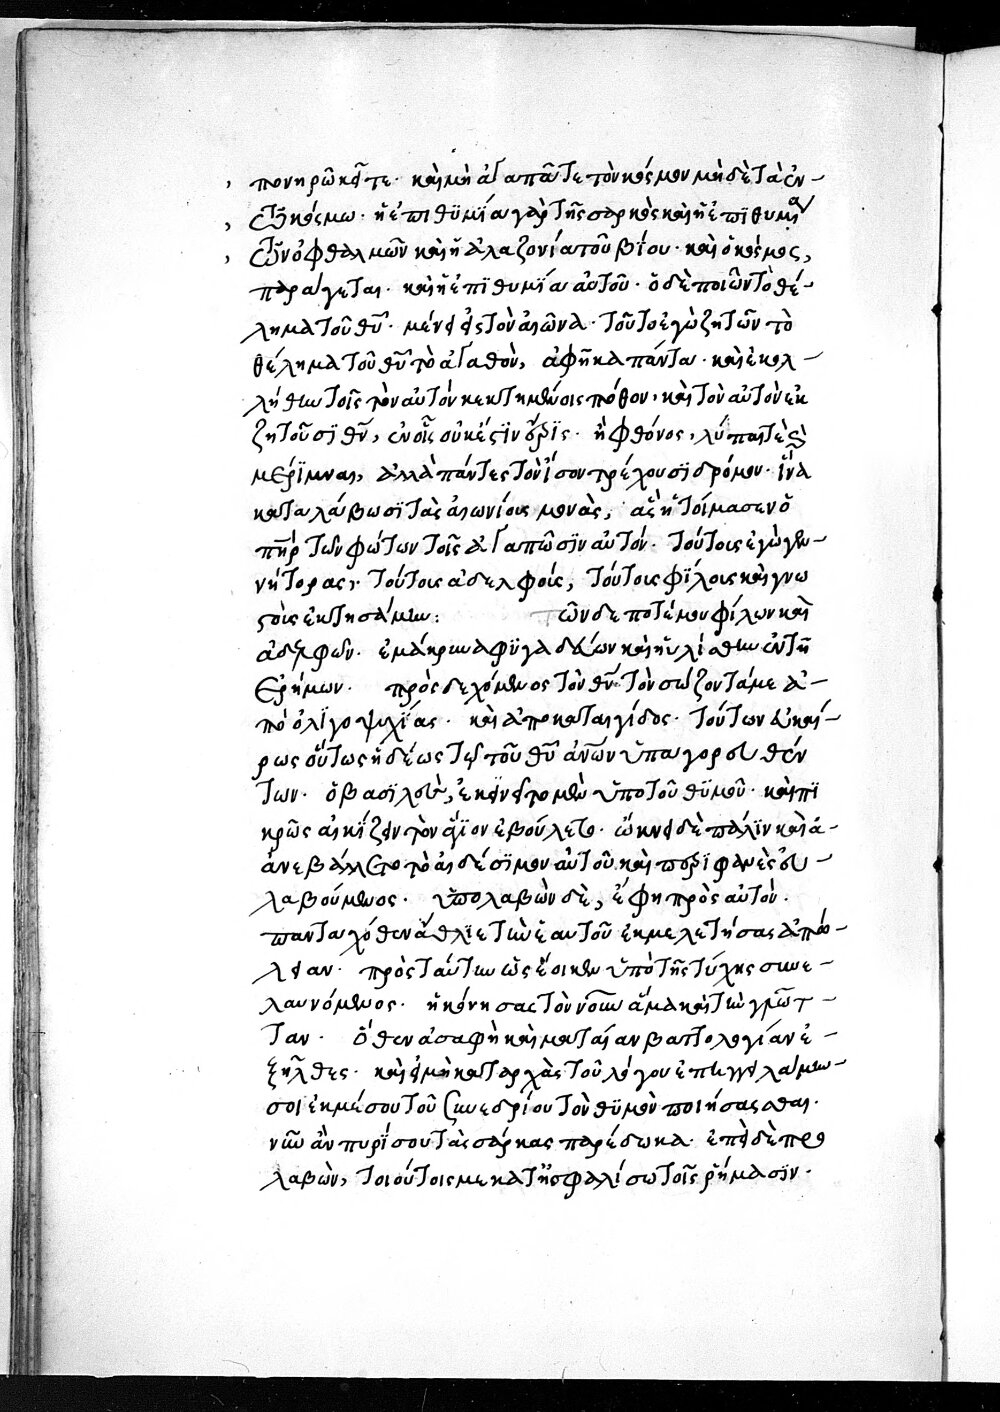 πονηρῶ κεῖται· καὶ μὴ ἀγαπᾶτε τὸν κόσμον μὴ δὲ τὰ ἐν
τῶ κόσμω· ἡ ἐπιθυμία γὰρ τῆς σαρκὸς καὶ ἡ ἐπιθυμία
τῶν ὀφθαλμῶν καὶ ἡ ἀλαζονία τοῦ βίου· καὶ ὁ κόσμος,
παράγεται· καὶ ἡ ἐπιθυμία αὐτοῦ· ὁ δὲ ποιῶν τὸ θέ-
λημα τοῦ θυ· μένει εἰς τὸν αἰῶνα· τοῦτο ἐγὼ ζητῶν τὸ
θέλημα τοῦ θυ τὸ ἀγαθὸν, ἀφῆκα πάντα· καὶ ἐκολ-
λήθην τοῖς τὸν αὐτὸν κεκτημένοις πόθον, καὶ τὸν αὐτὸν ἐκ
ζητοῦσι θν, ἐν οἷς οὐκ ἔστιν ὕβρις· ἢ φθόνος, λύπαι τὲ καὶ
μέριμναι, ἀλλὰ πάντες τὸν ἴσον τρέχουσι δρόμον· ἵνα
καταλάβωσι τὰς αἰωνίους μονὰς, ἃς ἡτοίμασεν ὁ
πηρ τῶν φώτων τοῖς ἀγαπῶσιν αὐτόν· τούτους ἐγὼ γεν-
νήτορας, τούτους ἀδελφοὺς, τούτους φίλους καὶ γνω
στοὺς ἐκτησάμην: τῶν δέ ποτέ μου φίλων καὶ
ἀδελφῶν· ἐμάκρυνα φυγαδεύων καὶ ηὐλίσθην ἐν τῆ
ἐρήμω· προσδεχόμενος τὸν θν τὸν σώζοντά με ἀ-
πὸ ὀλιγοψυχίας· καὶ ἀπὸ καταιγίδος· τούτων εὐκαί-
ρως οὕτως ἡδέως τε τοῦ θυ ἀνῶν ὑπαγορευθέν
των· ὁ βασιλεὺς, ἐκινεῖτο μὲν ὑπὸ τοῦ θυμοῦ· καὶ πι
κρῶς αἰκίζειν τὸν ἅγιον ἐβούλετο· ὤκνει δὲ πάλιν καὶ
ἀνεβάλλετο τὸ αἰδέσιμον αὐτοῦ καὶ περιφανὲς εὐ-
λαβούμενος· ὑπολαβὼν δὲ, ἔφη πρὸς αὐτόν·
πανταχόθεν ἄθλιε τὴν ἑαυτοῦ ἐκμελετήσας ἀπώ-
λειαν· πρὸς ταύτην ὡς ἔοικεν ὑπὸ τῆς τύχης συνε-
λαυνόμενος· ἠκόνησας τὸν νοῦν ἅμα καὶ τὴν γλῶτ-
ταν· ὅθεν ἀσαφῆ καὶ ματαίαν βαττολογίαν ἐ-
ξῆλθες· καὶ εἰ μὴ καταρχὰς τοῦ λόγου ἐπηγγειλάμην
σοι ἐκ μέσου τοῦ συνεδρίου τὸν θυμὸν ποιήσασθαι·
νῦν ἂν πυρί σου τὰς σάρκας παρέδωκα· ἐπεὶ δὲ προ
λαβὼν, τοιούτοις με κατησφαλίσω τοῖς ῥήμασιν·